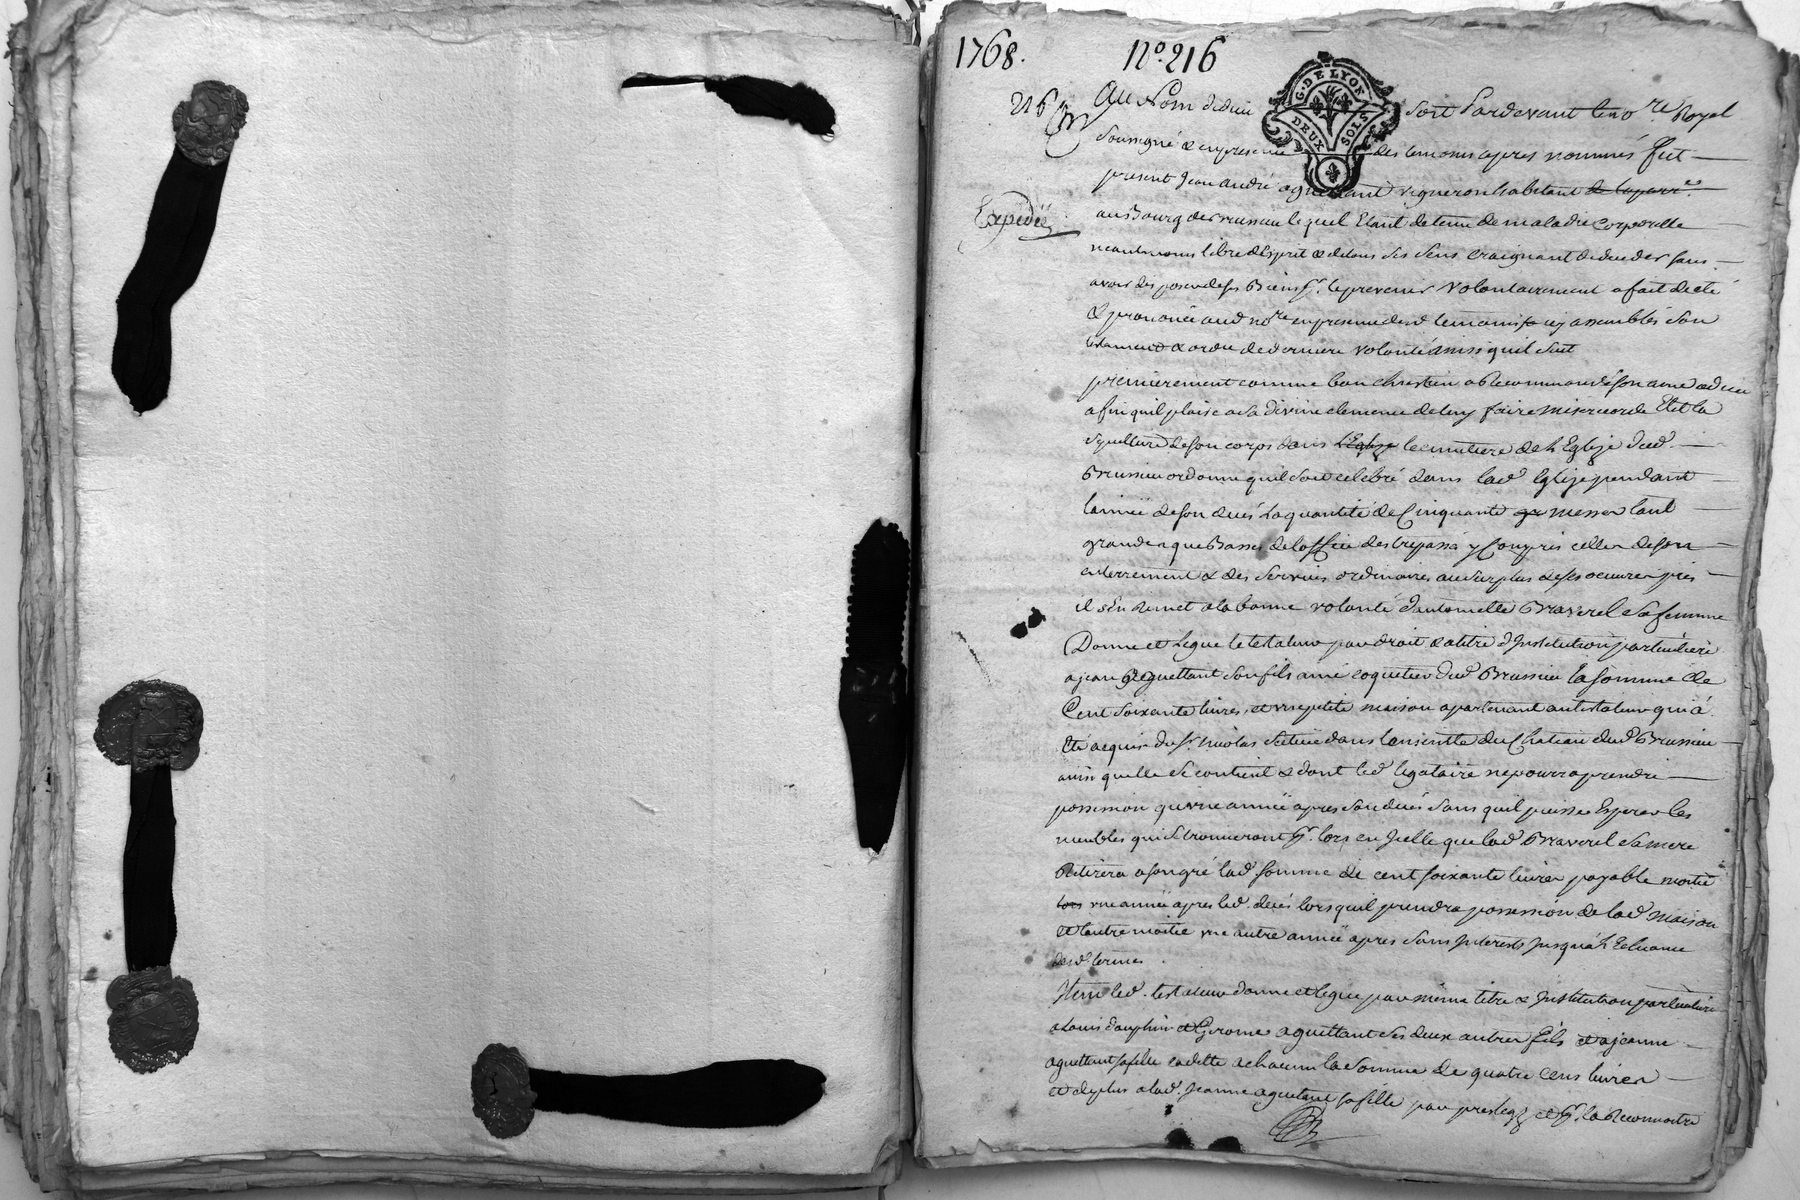 1768. N°. 216
216
G. DE LYON
DEUX SOLS
Au Nom de dieu soit Pardevant le no.re Royal
soussigné & en presence des temoins apres nommés fut
present Jean andré aguettant vigneron habitant de la parr.e
Expediée
au Bourg de Brussieu lequel Etant detenu de maladie Corporelle
neantmoins libre d'Esprit & de tous ses sens craignant de deceder sans
avoir disposé de ses Biens p.r le prevenir volontairement a fait dicté
& prononcé aud no.re en presence desd temoins icy assemblés son
testament & ordre de derniere volonté ainsi quil suit
premierement comme bon chrestien a Recommandé son ame a dieu
afin quil plaise a sa divine clemence de luy faire misericorde Elit la
sepulture de son corps dans L'Eglise le cimitiere de L'Eglize dud.
Brussieu ordonne quil soit celebré dans lad Eglize pendant
l'année de son decés la quantité de Cinquante messes tant
grandes que Basses de l'office des trepassés y Compris celles de son
enterrement & des services ordinaires au surplus de ses oeuvres pies
il s'en Remet a la bonne volonté d'antoinette Braverel sa femme
Donne et Legue le testateur par droit & a titre d'Institution particulière
a jean aguettant son fils ainé coquetier dud Brussieu la somme de
Cent soixante livres, et une petite maison apartenant au testateur qui a
Eté acquise du s.r Nicolas située dans l'enceinte du Chateau dud Brussieu
ainsi quelle se contient & dont led legataire ne pourra prendre
possession qu'une année apres son decés sans quil puisse Esperer les
meubles qui se trouveront p.r lors en Icelle que lad Braverel sa mere
Retirera a son gré lad somme de cent soixante livres payable moitié
lors une année apres led. decés lorsquil prendra possession de lad maison
et l'autre moitié une autre année apres sans Interests jusqu'a L'Echeance
desd. termes
Item led. testateur donne et legue par même titre & Institution particulière
a Louis dauphin et Gerome aguettant ses deux autres fils et a jeanne
aguettant sa fille cadette a chacun la somme de quatre cens livres
et de plus a lad. Jeanne aguettant sa fille par prelegz et p.r la Reconnoitre